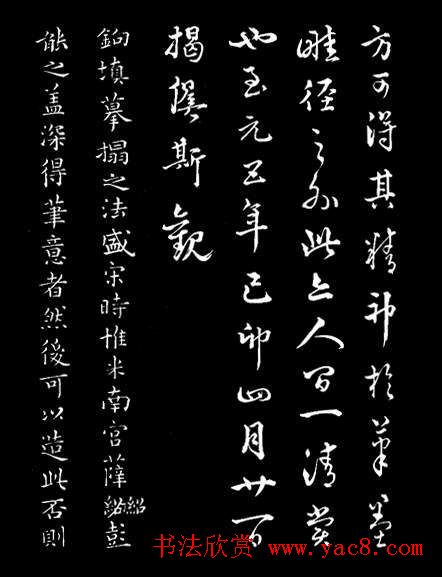 方可得其精神於筆墨
畦径之外此亦人間一清賞
也至元五年己卯四月廿一日
揭傒斯觀
鉤填摹搨之法盛宋時惟米南宮薛紹彭
能之盖深得筆意者然後可以造此否則
书法欣赏 www.yac8.com